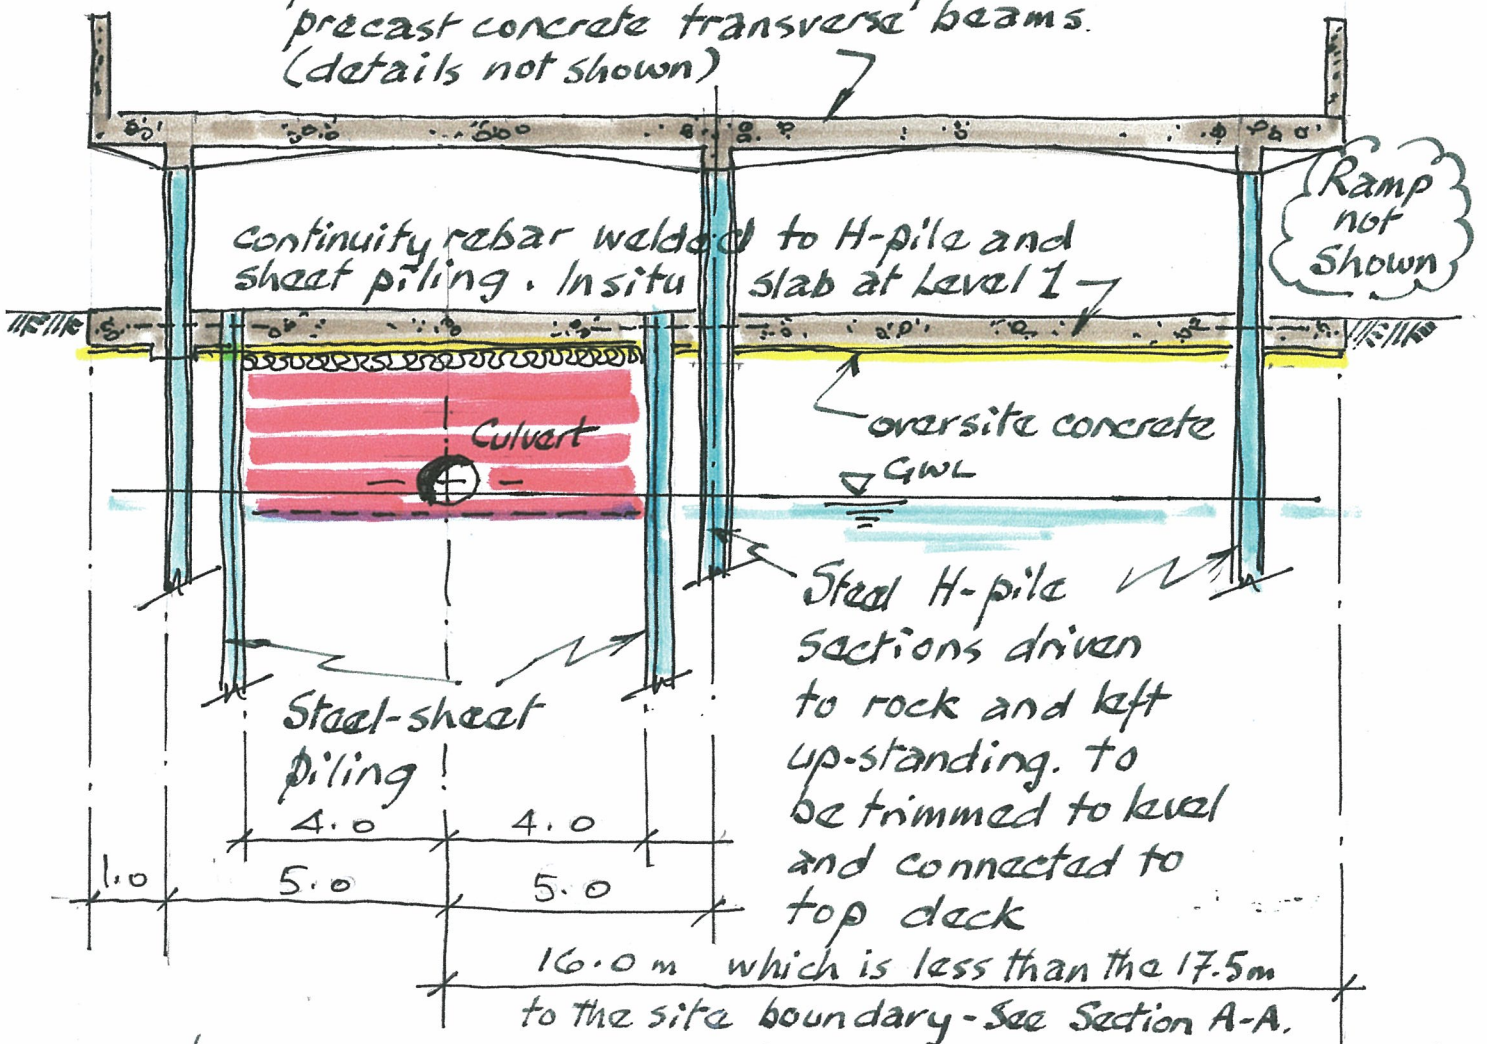 'precast concrete transverse' beams.
(details not shown)
Ramp
not
shown
continuity rebar welded to H-pile and
sheet piling. Insitu slab at Level 1
Culvert
oversite concrete
GWL
Steel H-pile
sections driven
to rock and left
up-standing. to
be trimmed to level
and connected to
top deck
Steel-sheet
piling
4.0 4.0
1.0 5.0 5.0
16.0 m which is less than the 17.5m
to the site boundary - See Section A-A.